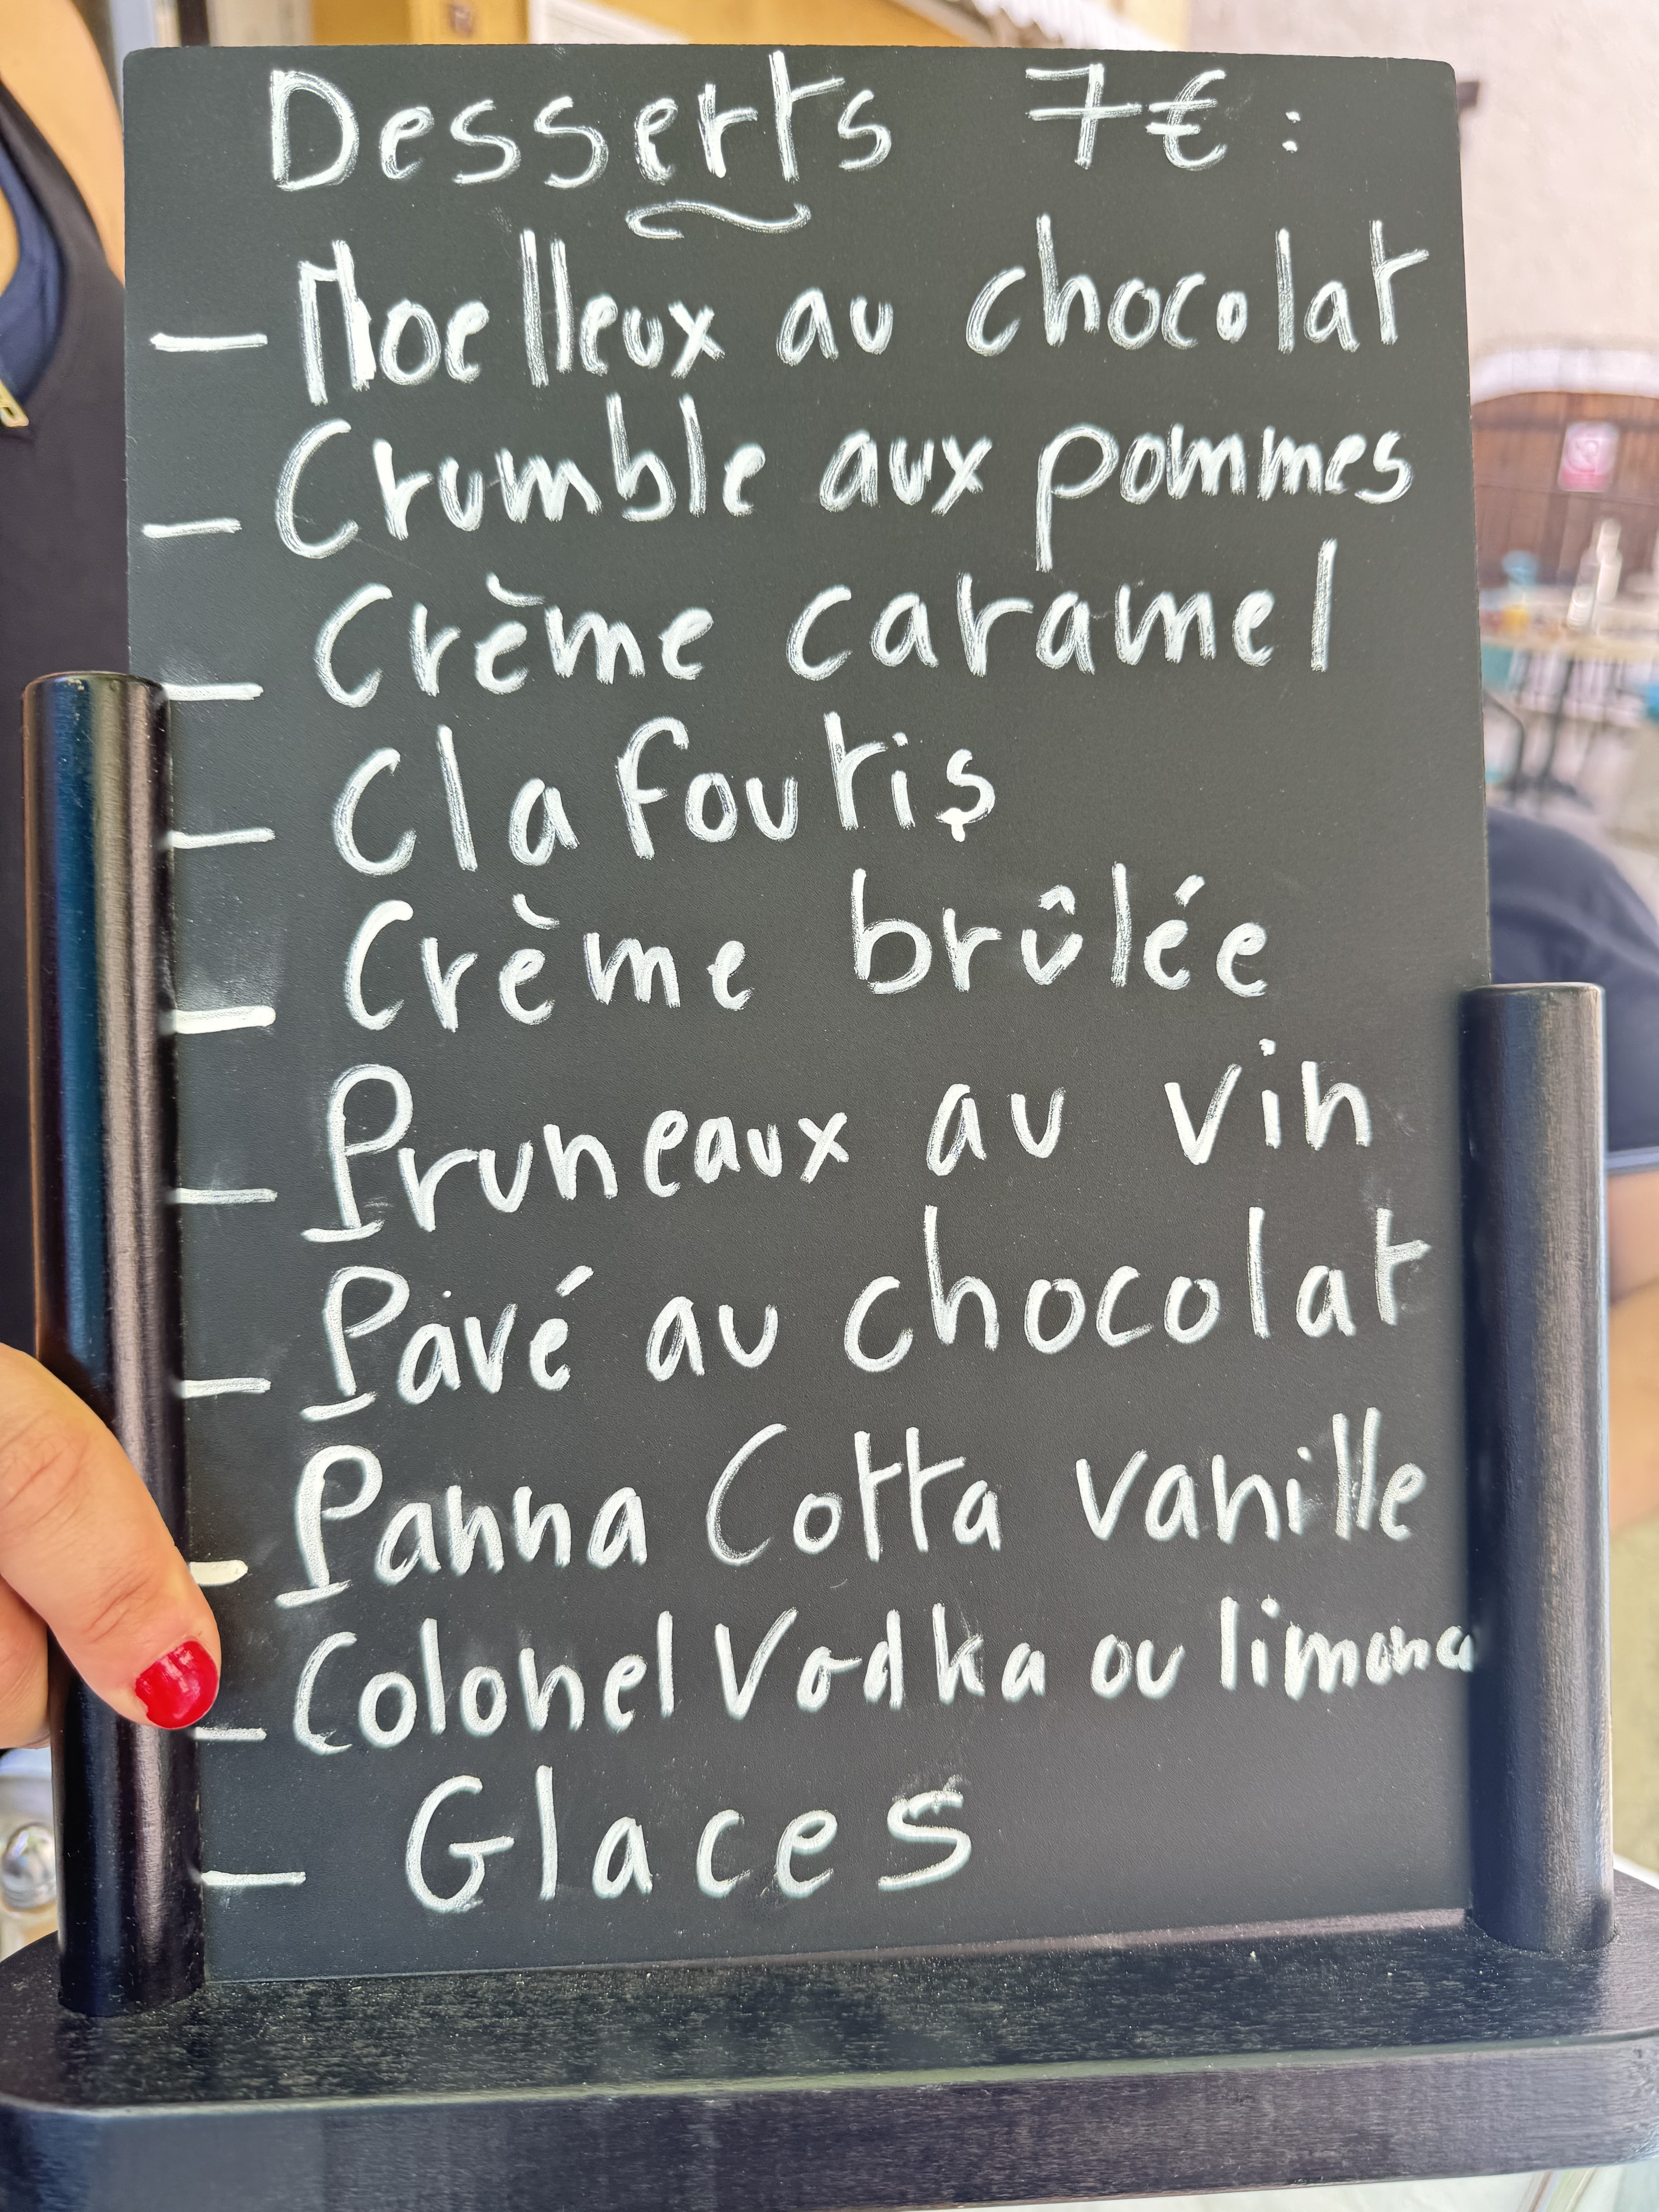 Desserts 7€ :
- Moelleux au chocolat
- Crumble aux pommes
- Crème caramel
- Clafoutis
- Crème brûlée
- Pruneaux au vin
- Pavé au chocolat
- Panna Cotta vanille
- Colonel Vodka ou
- Glaces